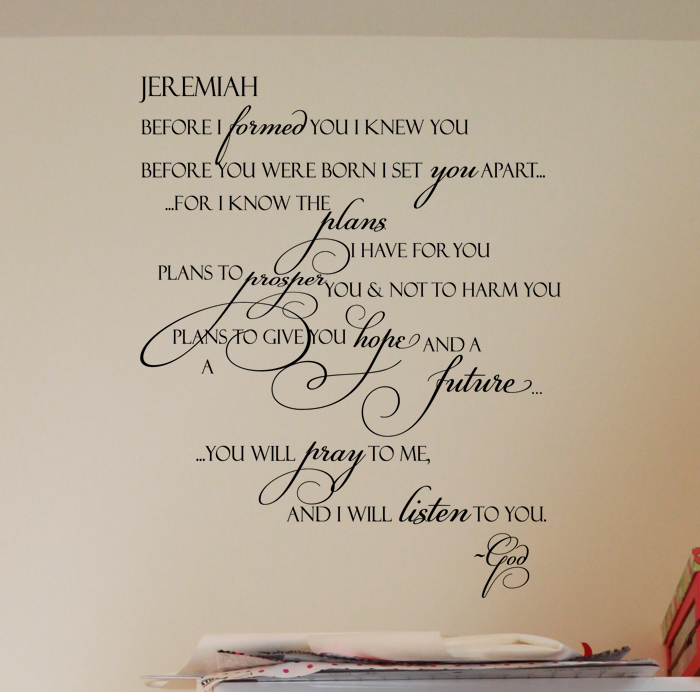 JEREMIAH
BEFORE I formed YOU I KNEW YOU
BEFORE YOU WERE BORN I SET you APART...
...FOR I KNOW THE
plans
I HAVE FOR YOU
PLANS TO prosper YOU & NOT TO HARM YOU
PLANS TO GIVE YOU hope AND A
A
future...
...YOU WILL pray TO ME,
AND I WILL listen TO YOU.
~God